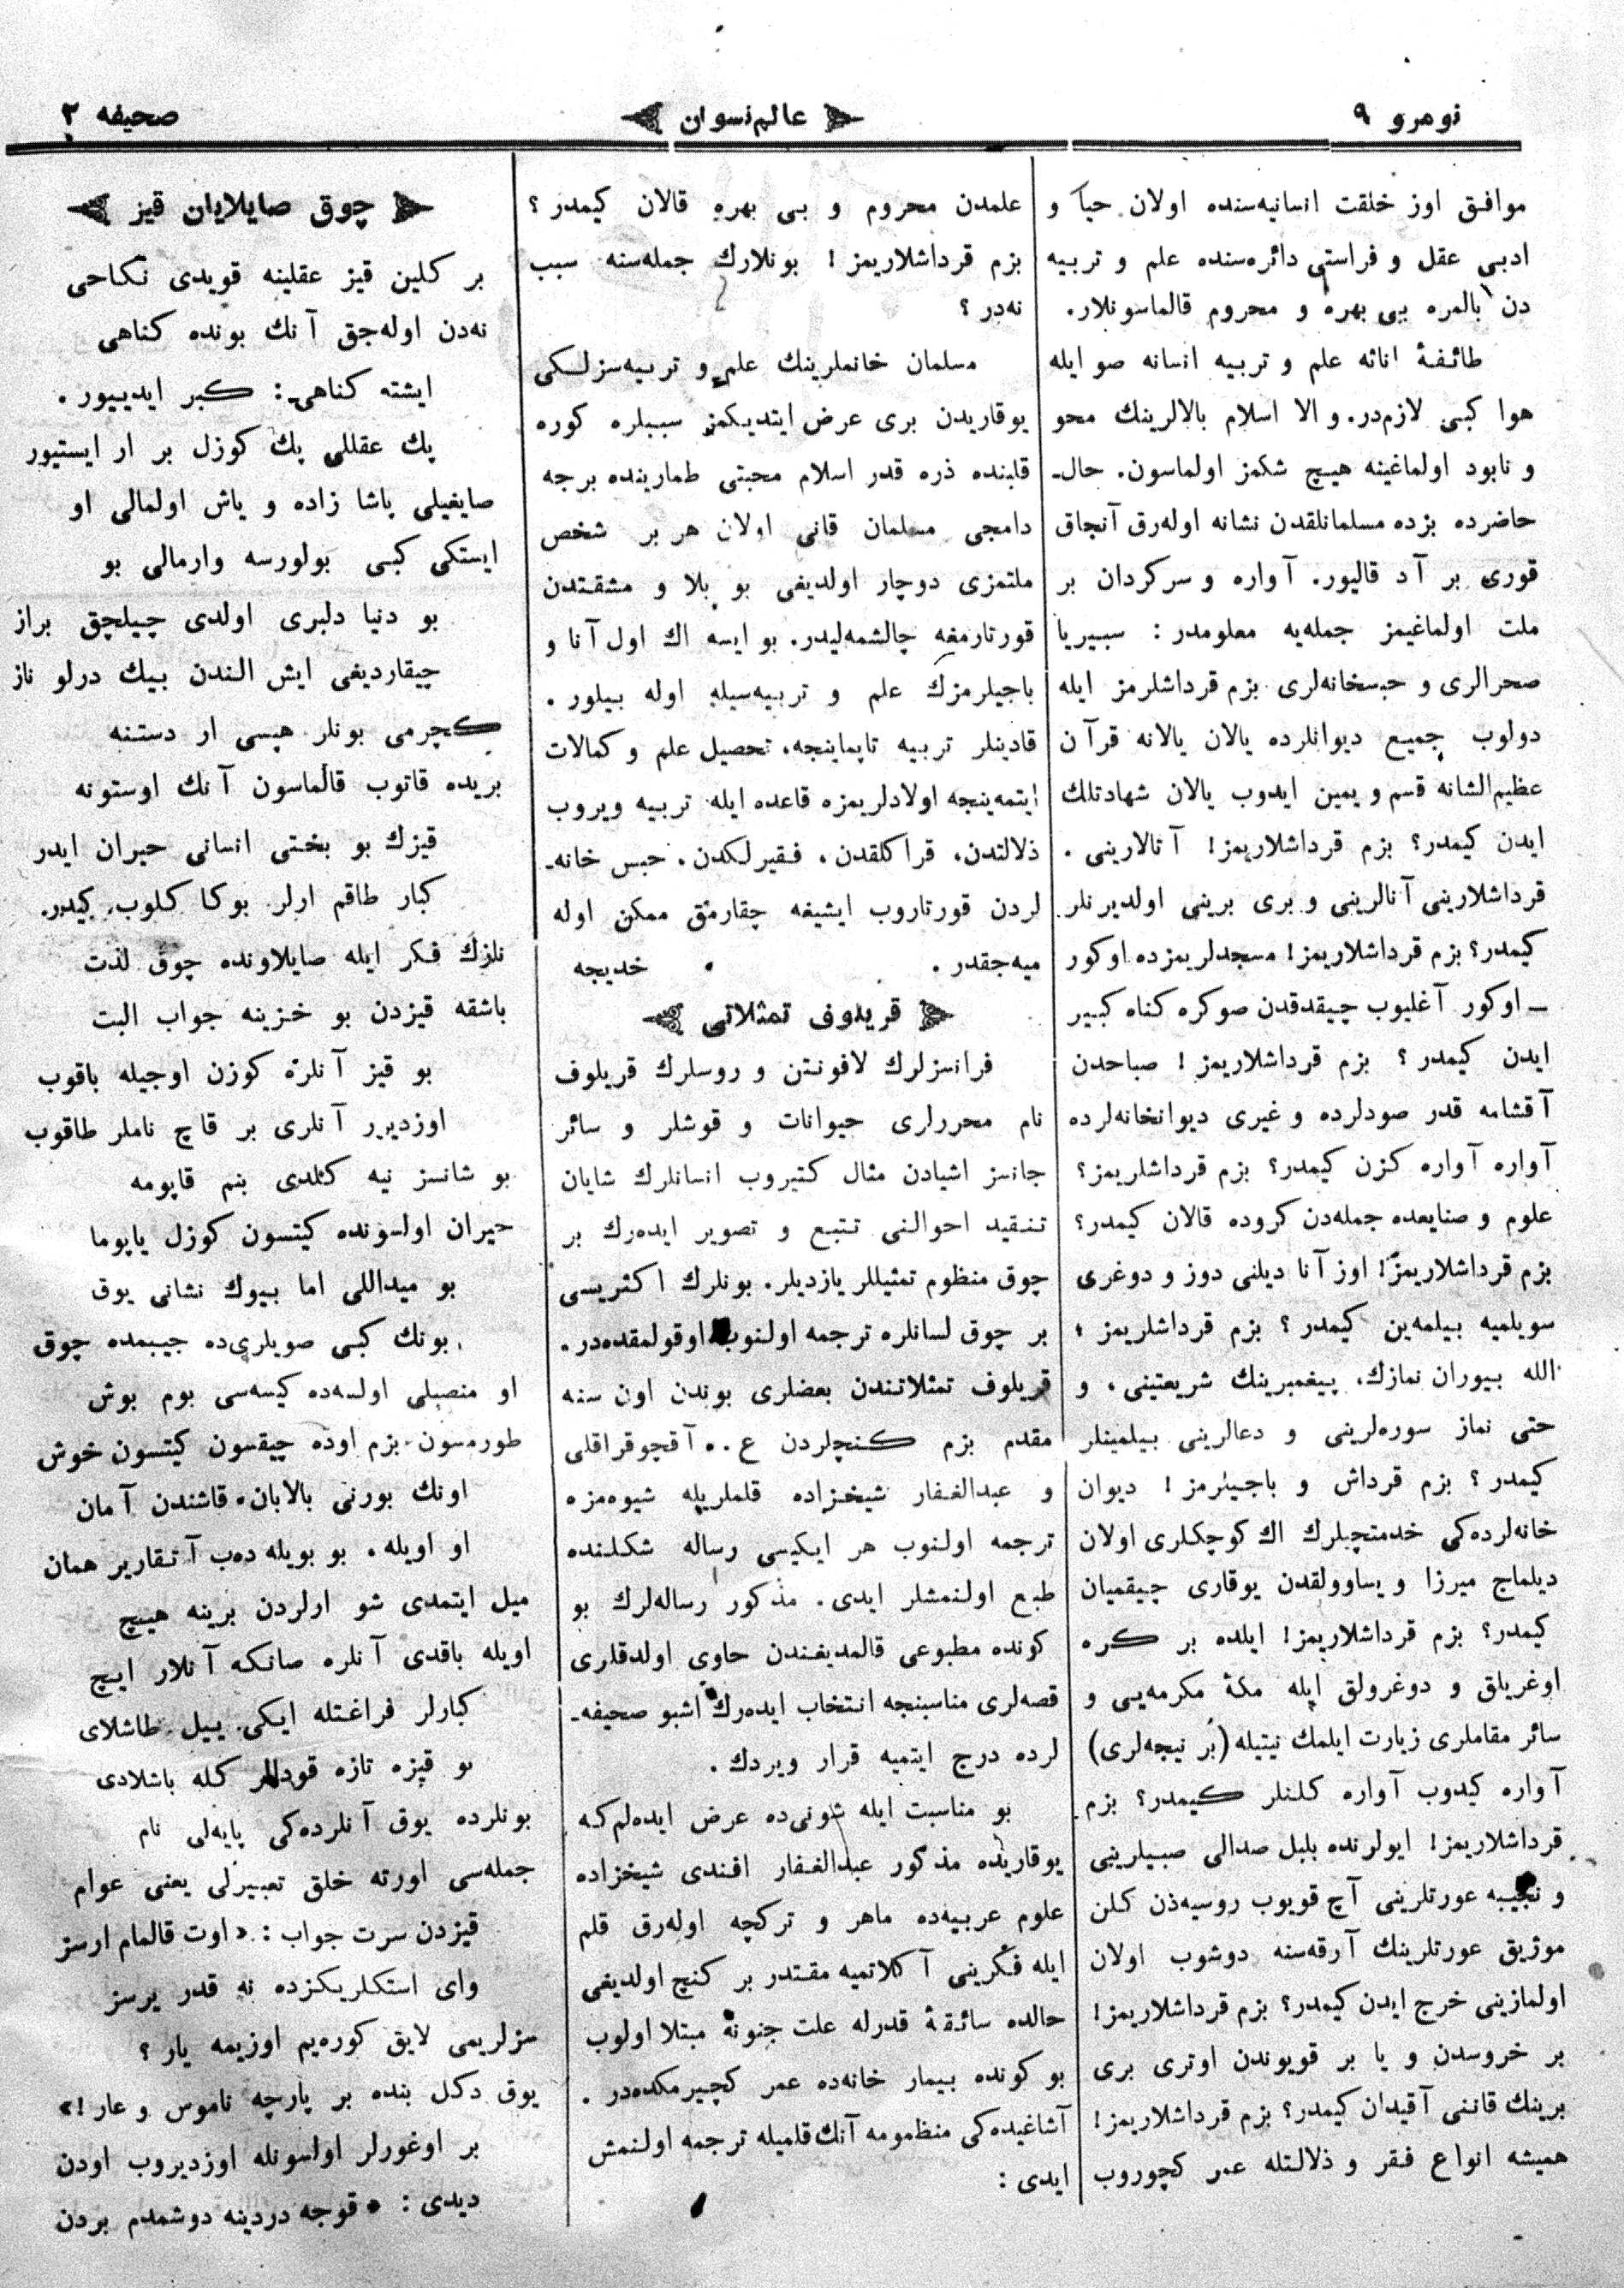 نومرو ۹
عالم نسوان
صحيفه ۳
موافق اوز خلقت انسانيه‌سنده اولان حيآ و
ادبی عقل و فراستی دائره‌سنده علم و تربيه
دن بالمره بی بهره و محروم قالماسونلار.
طائفۀ اناثه علم و تربيه انسانه صو ايله
هوا كبی لازم‌در. و الا اسلام بالالرينك محو
و نابود اولماغينه هيچ شكمز اولماسون. حال‌ـ
حاضرده بزده مسلمانلقدن نشانه اوله‌رق آنجاق
قوری بر آد قاليور. آواره و سركردان بر
ملت اولماغيمز جمله‌يه معلومدر: سبيريا
صحرالری و حبسخانه‌لری بزم قرداشلرمز ايله
دولوب جميع ديوانلرده يالان يالانه قرآن
عظيم‌الشانه قسم و يمين ايدوب يالان شهادتلك
ايدن كيمدر؟ بزم قرداشلاريمز! آتالارينی.
قرداشلارينی آنالرينی و بری برينی اولديرنلر
كيمدر؟ بزم قرداشلاريمز! مسجدلريمزده اوكور
ـ اوكور آغليوب چيقدقدن صوكره كناه كبير
ايدن كيمدر؟ بزم قرداشلاريمز! صباحدن
آقشامه قدر صودلرده و غيری ديوانخانه‌لرده
آواره آواره كزن كيمدر؟ بزم قرداشلريمز؟
علوم و صنايعده جمله‌دن كروده قالان كيمدر؟
بزم قرداشلاريمز! اوز آنا ديلنی دوز و دوغری
سويلميه بيلمه‌ين كيمدر؟ بزم قرداشلريمز؛
الله بيوران نمازك، پيغمبرينك شريعتينی، و
حتی نماز سوره‌لرينی و دعالرينی بيلمينلر
كيمدر؟ بزم قرداش و باجيلرمز! ديوان
خانه‌لرده‌كی خدمتچيلرك اك كوچكلری اولان
ديلماج ميرزا و يساوولقدن يوقاری چيقميان
كيمدر؟ بزم قرداشلاريمز! ايلده بر كره
اوغريلق و دوغرولق ايله مكۀ مكرمه‌يی و
سائر مقاملری زيارت ايلمك نيتيله (بر نيچه‌لری)
آواره كيدوب آواره كلنلر كيمدر؟ بزم
قرداشلاريمز! ايولرنده بلبل صدالی صبيلرينی
و نجيبه عورتلرينی آچ قويوب روسيه‌دن كلن
موژيق عورتلرينك آرقه‌سنه دوشوب اولان
اولمازينی خرج ايدن كيمدر؟ بزم قرداشلاريمز!
بر خروسدن و يا بر قويوندن اوتری بری
برينك قاننی آقيدان كيمدر؟ بزم قرداشلاريمز!
هميشه انواع فقر و ذلالتله عمر كچوروب
علمدن محروم و بی بهره قالان كيمدر؟
بزم قرداشلاريمز! بونلارك جمله‌سنه سبب
نه‌در؟
مسلمان خانملرينك علم و تربيه‌سزلكی
يوقاريدن بری عرض ايتديكمز سببلره كوره
قلبنده ذره قدر اسلام محبتی طمارينده برجه
دامجی مسلمان قانی اولان هر بر شخص
ملتمزی دوچار اولديغی بو بلا و مشقتدن
قورتارمغه چالشمه‌ليدر. بو ايسه اك اول آنا و
باجيلرمزك علم و تربيه‌سيله اوله بيلور.
قادينلر تربيه تاپماينجه، تحصيل علم و كمالات
ايتمه‌ينجه اولادلريمزه قاعده ايله تربيه ويروب
ذلالتدن، قراكلقدن، فقيرلكدن، حبس خانه‌ـ
لردن قورتاروب ايشيغه چقارمق ممكن اوله
ميه‌جقدر. خديجه
قريلوف تمثلاتی
فرانسزلرك لافونتن و روسلرك قريلوف
نام محررلری حيوانات و قوشلر و سائر
جانسز اشيادن مثال كتيروب انسانلرك شايان
تنقيد احوالنی تتبع و تصوير ايده‌رك بر
چوق منظوم تمثيللر يازديلر. بونلرك اكثريسی
بر چوق لسانلره ترجمه اولنوب اوقولمقده‌در.
قريلوف تمثلاتندن بعضلری بوندن اون سنه
مقدم بزم كنچلردن ع.. آقچوقراقلی
و عبدالغفار شيخزاده قلملريله شيوه‌مزه
ترجمه اولنوب هر ايكيسی رساله شكلنده
طبع اولنمشلر ايدی. مذكور رساله‌لرك بو
كونده مطبوعی قالمديغندن حاوی اولدقلری
قصه‌لری مناسبنجه انتخاب ايده‌رك اشبو صحيفه‌ـ
لرده درج ايتميه قرار ويردك.
بو مناسبت ايله شونی‌ده عرض ايده‌لم كه
يوقاريده مذكور عبدالغفار افندی شيخزاده
علوم عربيه‌ده ماهر و تركچه اوله‌رق قلم
ايله فكرينی آكلاتميه مقتدر بر كنچ اولديغی
حالده سائقۀ قدرله علت جنونه مبتلا اولوب
بو كونده بيمار خانه‌ده عمر كچيرمكده‌در.
آشاغيده‌كی منظومه آنك قلميله ترجمه اولنمش
ايدی:
چوق صايلايان قيز
بر كلين قيز عقلينه قويدی نكاحی
نه‌دن اوله‌جق آنك بونده كناهی
ايشته كناهی: كبر ايدييور.
پك عقللی پك كوزل بر ار ايستيور
صايغيلی پاشا زاده و ياش اولمالی او
ايستكی كبی بولورسه وارمالی بو
بو دنيا دلبری اولدی چيلچق براز
چيقارديغی ايش الندن بيك درلو ناز
كچرمی بونلر هپسی ار دستنه
بريده قاتوب قالماسون آنك اوستونه
قيزك بو بختی انسانی حيران ايدر
كبار طاقم ارلر بوكا كلوب كيدر.
فكر ايله صايلاونده چوق لذت
باشقه قيزدن بو خزينه جواب البت
بو قيز آنلره كوزن اوجيله باقوب
اوزديرر آنلری بر قاچ ناملر طاقوب
بو شانسز نيه كلدی بنم قاپومه
حيران اولسونده كيتسون كوزل ياپوما
بو ميداللی اما بيوك نشانی يوق
بونك كبی صويلری‌ده جيبمده چوق
او منصبلی اولسه‌ده كيسه‌سی بوم بوش
طورمسون بزم اوده چيقسون كيتسون خوش
اونك بورنی بالابان، قاشندن آمان
او اويله، بو بويله ده‌ب آتقارير همان
ميل ايتمدی شو ارلردن برينه هيچ
اويله باقدی آنلره صانكه آنلار ايچ
كبارلر فراغتله ايكی ييل طاشلای
بو قيزه تازه قودالر كله باشلادی
بونلرده يوق آنلرده‌كی پايه‌لی نام
جمله‌سی اورته خلق تعبيرلی يعنی عوام
قيزدن سرت جواب: «اوت قالمام ارسز
وای استكلريكزده نه قدر يرسز
سزلريمی لايق كوره‌يم اوزيمه يار؟
يوق دكل بنده بر پارچه ناموس و عار!»
بر اوغورلر اولسونله اوزديروب اودن
ديدی: «قوجه دردينه دوشمدم بردن